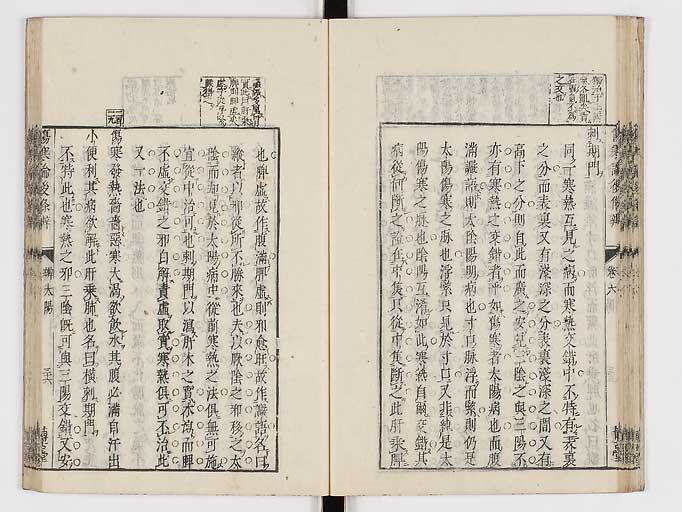 刺期門
同一寒熱互見之病而寒熱交錯中不特有表裏
之分而表裏又有淺深之分表裏淺深之間又有
高下之分則自此而廣之安見三陰之與三陽不
亦有寒熱之交錯者乎如傷寒者太陽病也而腹
滿譫語則太陰陽明病也寸口脉浮而緊則仍是
太陽傷寒之脉也浮緊只見於寸口又非純是太
陽傷寒之脉也陰陽互淆如此寒熱自爾交錯其
病從何斷之證在中隻只從中隻斷之此肝乘脾
也脾虛故作腹滿肝虛則邪愈旺故作譫語名曰
縱者以邪從所不勝來也夫以厥陰之邪移之太
陰而却見於太陽病中從前寒熱之法俱無可施
宜從中治可也刺期門以瀉肝木之實木瀉而脾
不虛交錯之邪自解責虛取實寒熱俱可不治此
又一法也
傷寒發熱嗇嗇惡寒大渴欲飮水其腹必滿自汗出
小便利其病欲解此肝乘肺也名曰橫刺期門
不特此也寒熱之邪三陰旣可與三陽交錯又安
傷寒論後條辨
辨太陽
三六
卷六